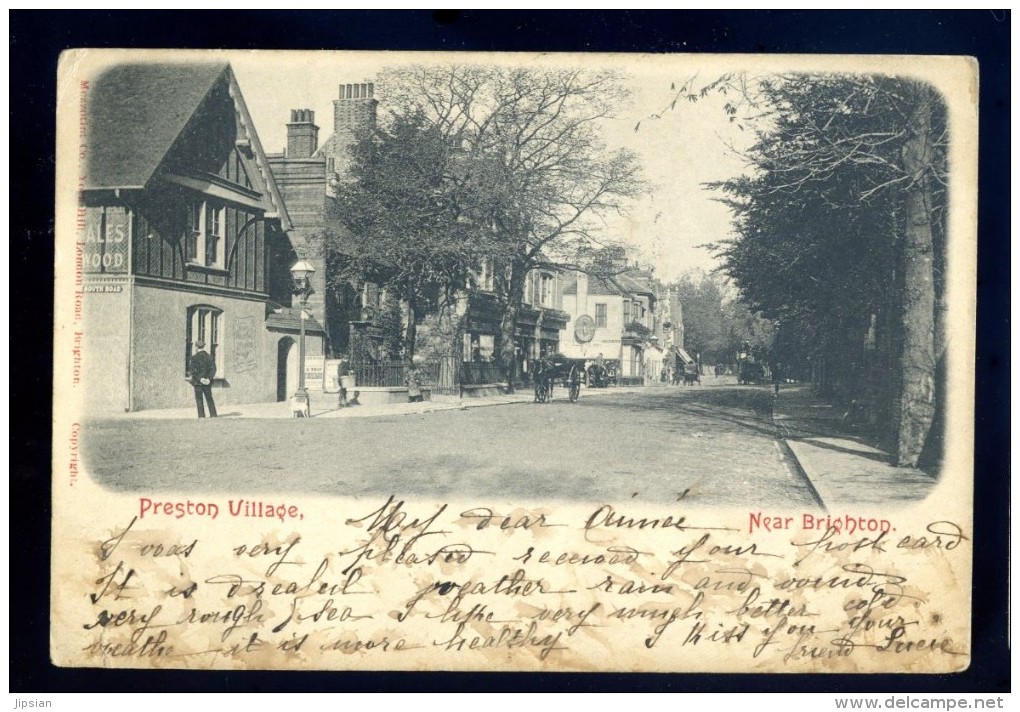 ALES
WOOD
SOUTH ROAD
London Road, Brighton.
Copyright.
Preston Village,
Near Brighton.
My dear Annee
I was very pleased received your post card
It is dreafeil weather rain and wound
very rough Sea I like very mugh better cold
weathe it is more healthy I kiss you your
friend
jipsian
www.delcampe.net